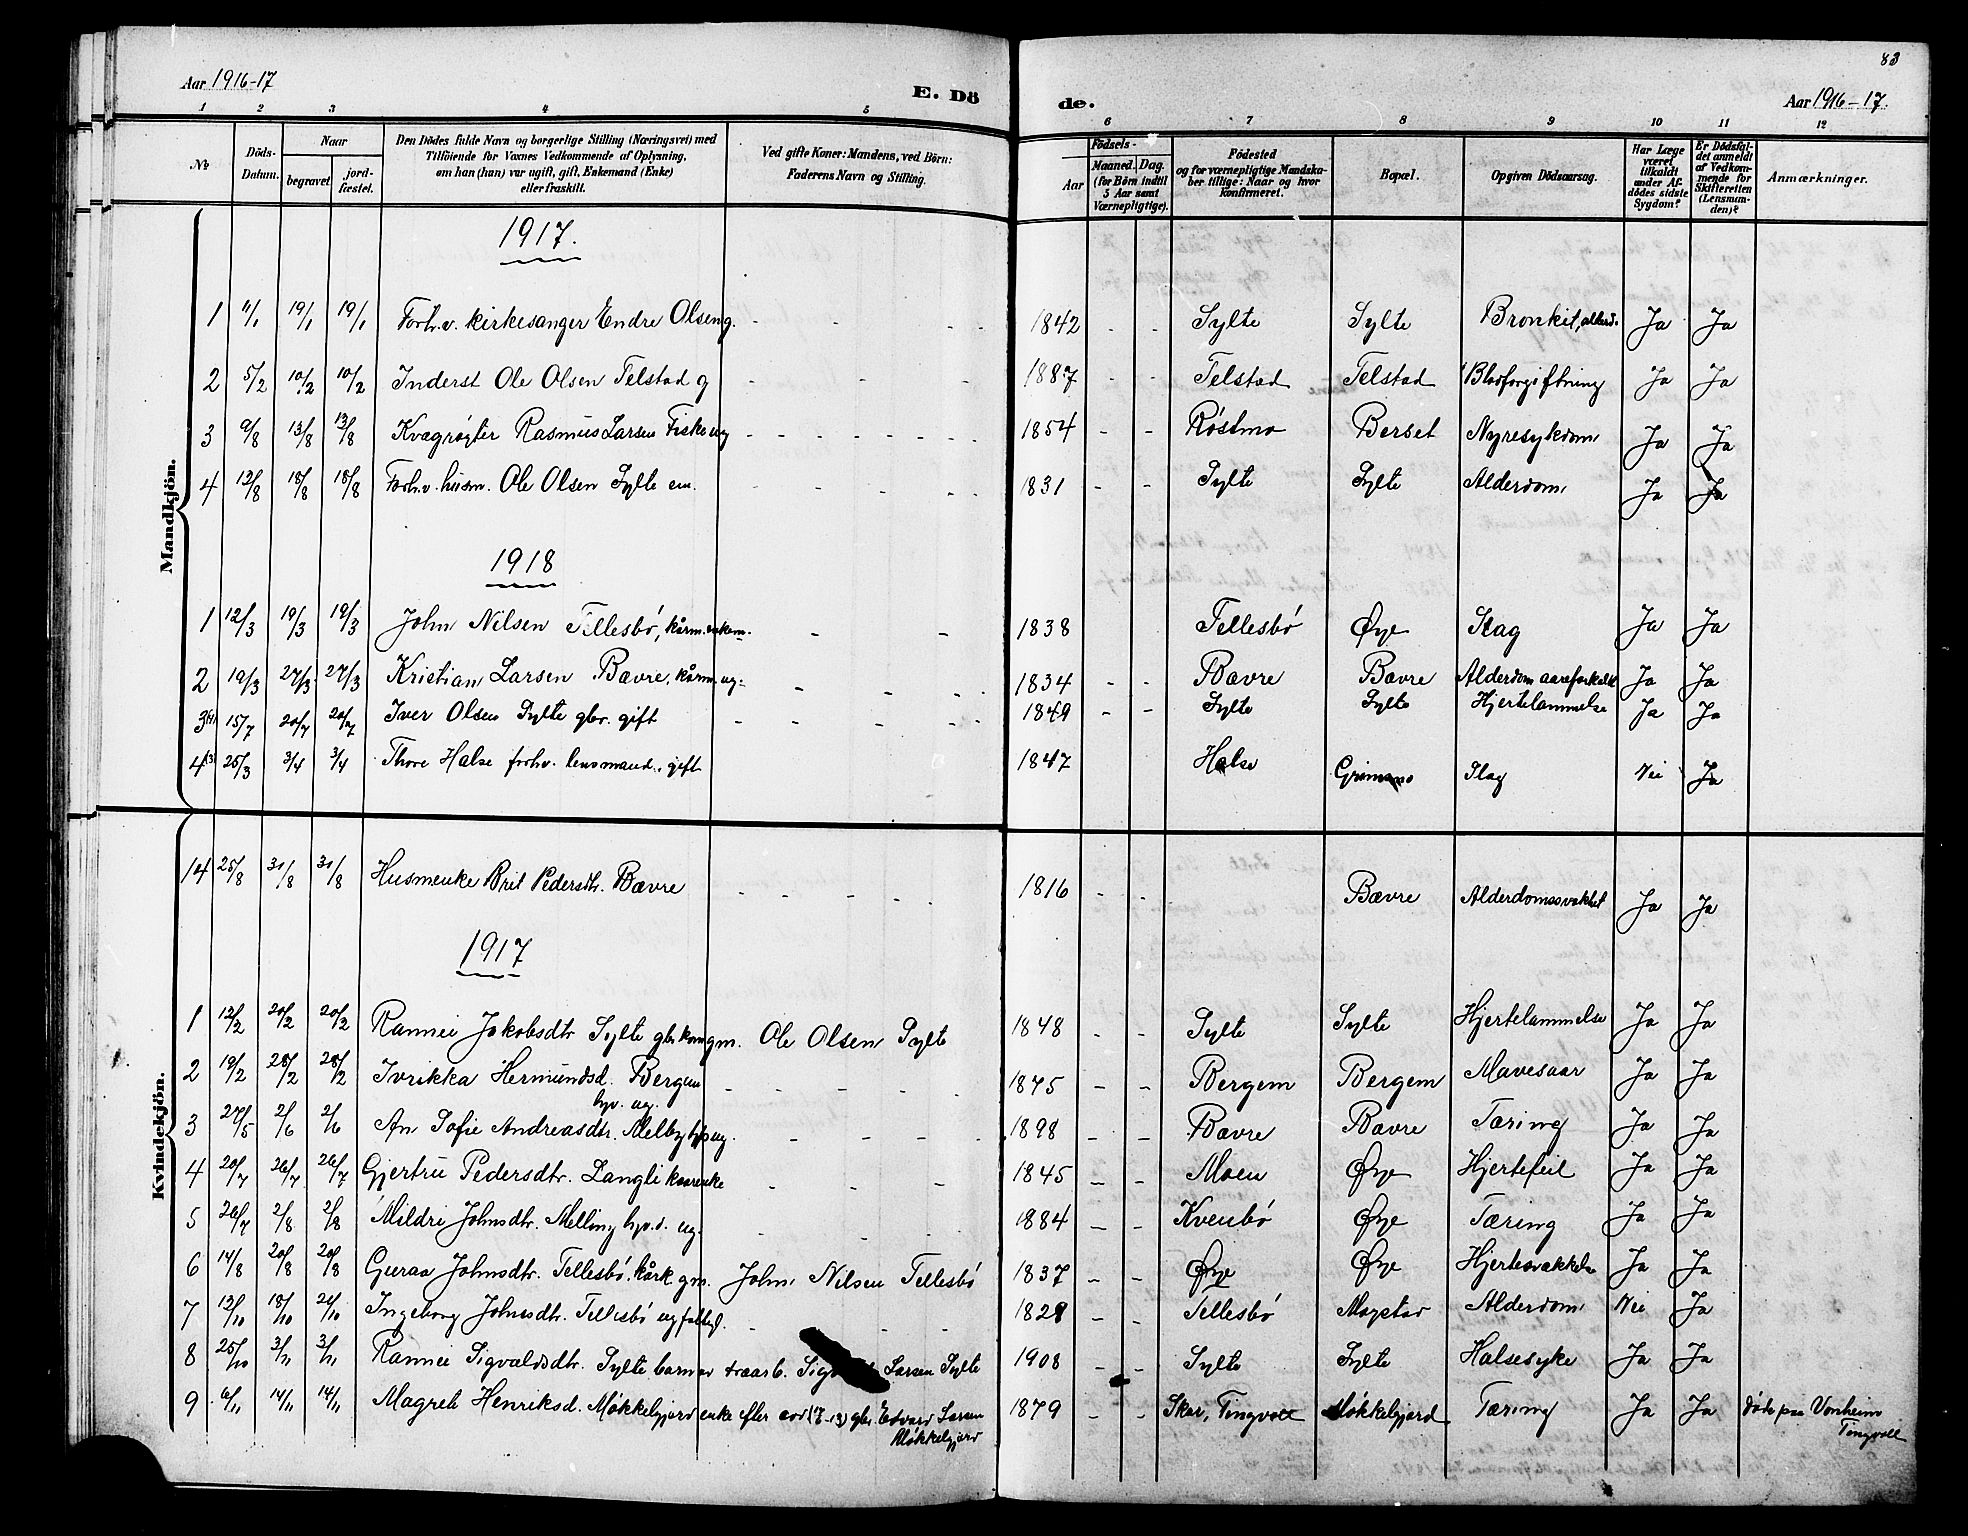 83
Aar 1916-17
E. Dö
de.
Aar 1916-17.
1 2 3 4 5 6 7 8 9 10 11 12
No
Döds-Datum.
Naar
begravet
jord-fæstet.
Den Dödes fulde Navn og borgerlige Stilling (Næringsvei) med
Tilföiende for Voxnes Vedkommende af Oplysning,
om han (hun) var ugift, gift, Enkemand (Enke)
eller fraskilt.
Ved gifte Koner: Mandens, ved Börn:
Faderens Navn og Stilling.
Födsels-
Aar
Maaned. Dag.
(for Börn indtil
5 Aar samt
Værnepligtige).
Födested
og for værnepligtige Mandska-
ber tillige: Naar og hvor
konfirmeret.
Bopæl.
Opgiven Dödsaarsag.
Har Læge
været
tilkaldt
under Af-
dödes sidste
Sygdom?
Er Dödsfal-
det anmeldt
af Vedkom-
mende for
Skifteretten
(Lensman-
den)?
Anmærkninger.
Mandkjön.
1917.
1 11/1 19/1 19/1 Forh.v. kirkesanger Endre Olsen g. - - - - 1842 - - Sylte Sylte Bronkit, alderd. Ja Ja
2 5/2 10/2 10/2 Inderst Ole Olsen Telstad g - - - 1887 - - Telstad Telstad Blodforgiftning Ja Ja
3 9/8 13/8 13/8 Kvægrøgter Rasmus Larsen Fiske ug - - - - - - 1854 - - Røstmo Berset Nyresykdom Ja Ja
4 12/8 18/8 18/8 Forh.v. husm. Ole Olsen Sylte em. - - - - - 1831 - - Sylte Sylte Alderdom Ja Ja
1918
1 12/3 19/3 19/3 John Nilsen Tellesbø, kårm. enkem. - - 1838 Tellesbø Øye Slag Ja Ja
2 19/3 27/3 27/3 Kristian Larsen Bævre, kårm. ug. - - - - 1834 - - Bævre Bævre Alderdom aareforkalk Ja Ja
3 15/7 20/7 20/7 Iver Olsen Sylte gbr. gift - - - - - 1849 - - Sylte Sylte Hjertelammelse Ja Ja
4 25/3 3/4 3/4 Thore Halse forhv. lensmand gift 1847 Halse Slag Nei Ja
Kvindekjön.
14 25/8 31/8 31/8 Husmenke Brit Pedersdtr. Bævre - - - - 1816 - - Bævre Alderdomssvakhet Ja Ja
1917
1 12/2 20/2 20/2 Rannei Jakobsdtr Sylte gbr. kone gm. Ole Olsen Sylte 1848 - - Sylte Sylte Hjertelammelse Ja Ja
2 19/2 28/2 28/2 Ivrikka Hermundsd. Bergem - - - - - 1875 - - Bergem Bergem Mavesaar Ja Ja
hp. ug.
3 27/5 2/6 2/6 An Sofie Andreasdtr. Melby hp ug. - - - - 1898 - - Bævre Bævre Tæring Ja Ja
4 20/7 26/7 26/7 Gjertru Pedersdtr. Langli kaarenke - - - 1845 - - Moen Øye Hjertefeil Ja Ja
5 26/7 2/8 2/8 Mildri Johnsdtr. Melling hp. s. ug. - - - - 1884 - - Kvenbø Øye Tæring Ja Ja
6 14/8 20/8 20/8 Guraa Johnsdtr. Tellesbø. kårk gm. John Nilsen Tellesbø 1837 - - Øye Øye Hjertesvækkelse Ja Ja
7 12/10 18/10 21/10 Ingeborg Johnsdtr. Tellesbø ug fattigl. - - - 1828 - - Tellesbø Mogstad Alderdom Nei Ja
8 25/10 3/11 3/11 Rannei Sigvaldsdtr. Sylte barn av traarb. Larsen Sylte 1908 - - Sylte Sylte Halsesyke Ja Ja
9 6/11 14/11 14/11 Magreth Henriksd. Møkkelgjerd enke efter gbr. Edvard Larsen 1879 - - Skar, Tingvoll Møkkelgjerd Tæring Ja Ja døde paa Vonheim
Møkkelgjerd
Tingvoll